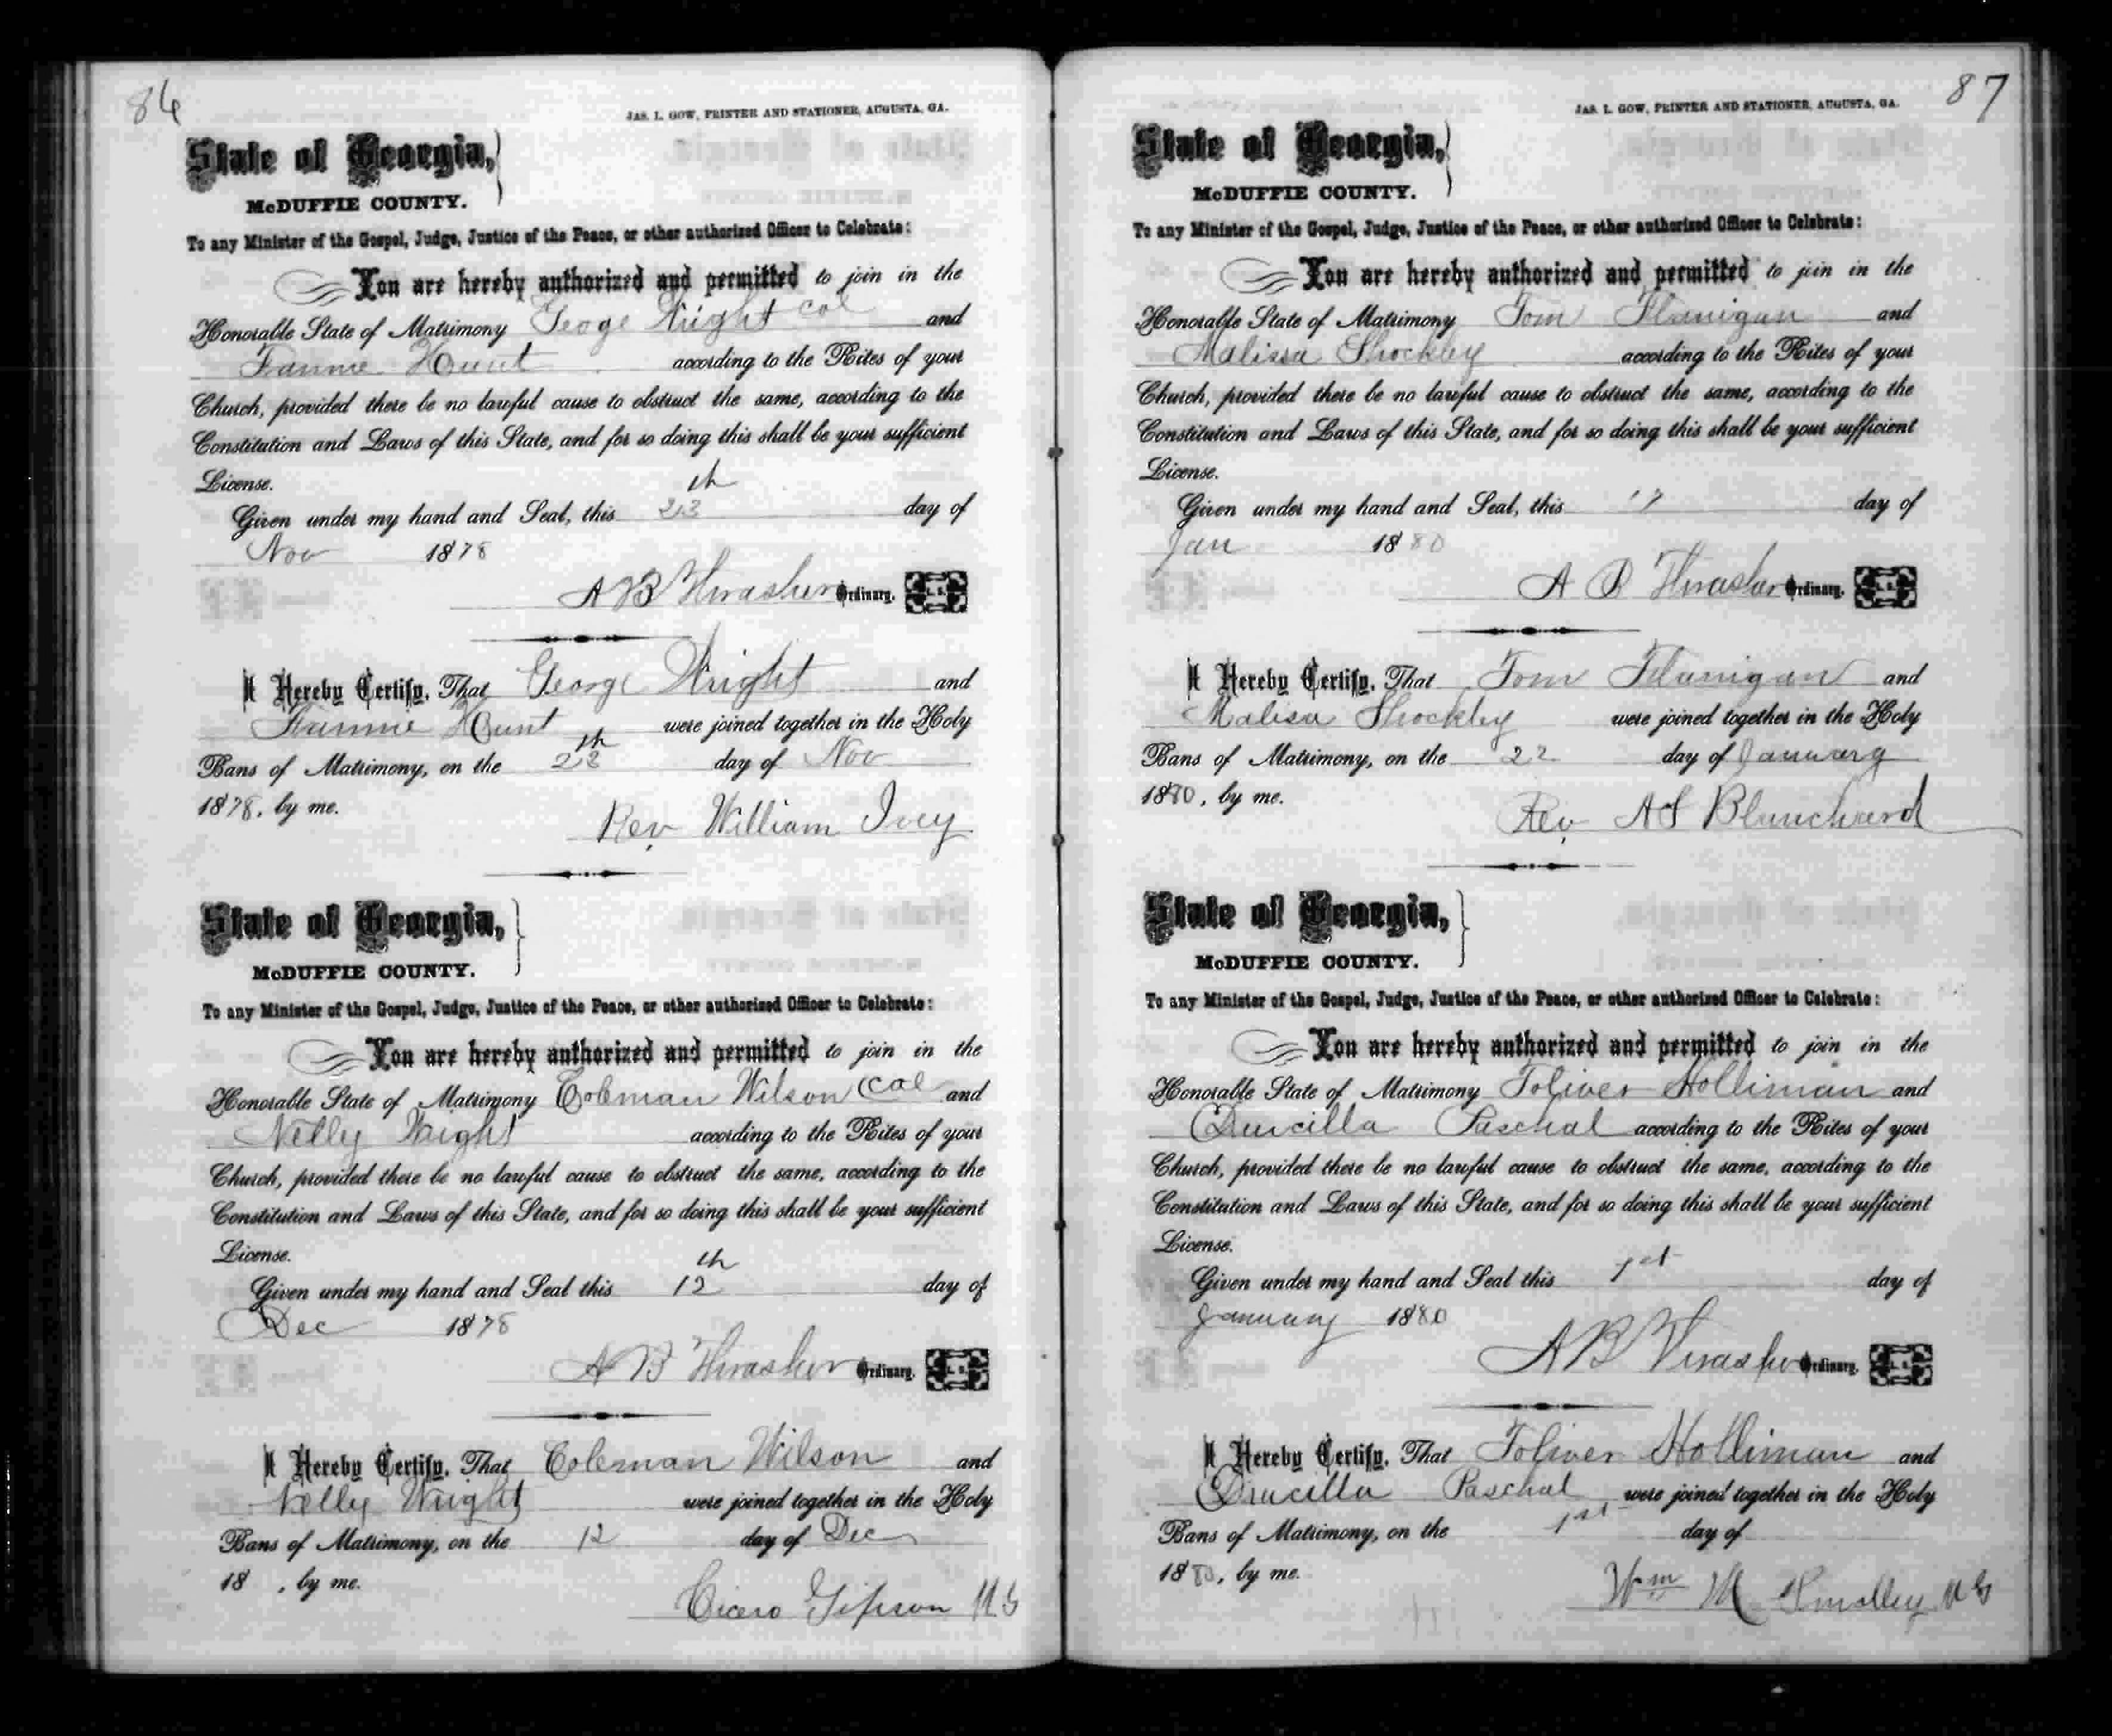 86
JAS. L. GOW, PRINTER AND STATIONER, AUGUSTA, GA.
State of Georgia,
McDUFFIE COUNTY.
To any Minister of the Gospel, Judge, Justice of the Peace, or other authorized Officer to Celebrate:
You are hereby authorized and permitted to join in the
Honorable State of Matrimony Geoge Wright col and
Fannie Hunt according to the Rites of your
Church, provided there be no lawful cause to obstruct the same, according to the
Constitution and Laws of this State, and for so doing this shall be your sufficient
License.
Given under my hand and Seal, this 23th day of
Nov 1878
A B Thrasher Ordinary. L. S.
I Hereby Certify, That George Wright and
Fannie Hunt were joined together in the Holy
Bans of Matrimony, on the 23th day of Nov
1878, by me.
Rev William Ivey
State of Georgia,
McDUFFIE COUNTY.
To any Minister of the Gospel, Judge, Justice of the Peace, or other authorized Officer to Celebrate:
You are hereby authorized and permitted to join in the
Honorable State of Matrimony Coleman Wilson col and
Nelly Wright according to the Rites of your
Church, provided there be no lawful cause to obstruct the same, according to the
Constitution and Laws of this State, and for so doing this shall be your sufficient
License.
Given under my hand and Seal this 12th day of
Dec 1878
A B Thrasher Ordinary. L. S.
I Hereby Certify, That Coleman Wilson and
Nelly Wright were joined together in the Holy
Bans of Matrimony, on the 12 day of Dec
18 , by me.
Cicero Gipson M G
87
JAS. L. GOW, PRINTER AND STATIONER, AUGUSTA, GA.
State of Georgia,
McDUFFIE COUNTY.
To any Minister of the Gospel, Judge, Justice of the Peace, or other authorized Officer to Celebrate:
You are hereby authorized and permitted to join in the
Honorable State of Matrimony Tom Flanigan and
Malissa Shockley according to the Rites of your
Church, provided there be no lawful cause to obstruct the same, according to the
Constitution and Laws of this State, and for so doing this shall be your sufficient
License.
Given under my hand and Seal, this 17 day of
Jan 1880
A B Thrasher Ordinary. L. S.
I Hereby Certify, That Tom Flanigan and
Malisa Shockley were joined together in the Holy
Bans of Matrimony, on the 22 day of January
1880, by me.
Rev AS Blanchard
State of Georgia,
McDUFFIE COUNTY.
To any Minister of the Gospel, Judge, Justice of the Peace, or other authorized Officer to Celebrate:
You are hereby authorized and permitted to join in the
Honorable State of Matrimony Toliver Holliman and
Drucilla Paschal according to the Rites of your
Church, provided there be no lawful cause to obstruct the same, according to the
Constitution and Laws of this State, and for so doing this shall be your sufficient
License.
Given under my hand and Seal this 1st day of
January 1880
A B Thrasher Ordinary. L. S.
I Hereby Certify, That Toliver Holliman and
Drucilla Paschal were joined together in the Holy
Bans of Matrimony, on the 1st day of
1880, by me.
Wm M Smalley M G